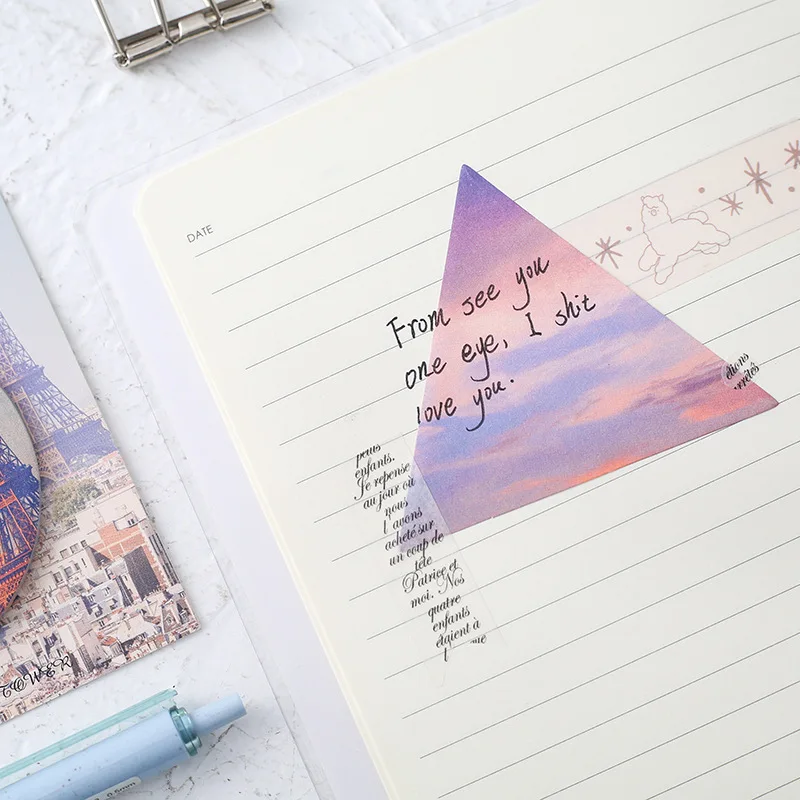 DATE
From see you
one eye, I shit
love you.
ctions
arrêtés
petits
enfants.
Je repense
au jour où
nous
l'avons
acheté sur
un coup de
tête
Patrice et
moi. Nos
quatre
enfants
étaient à
TOWER
0.5mm